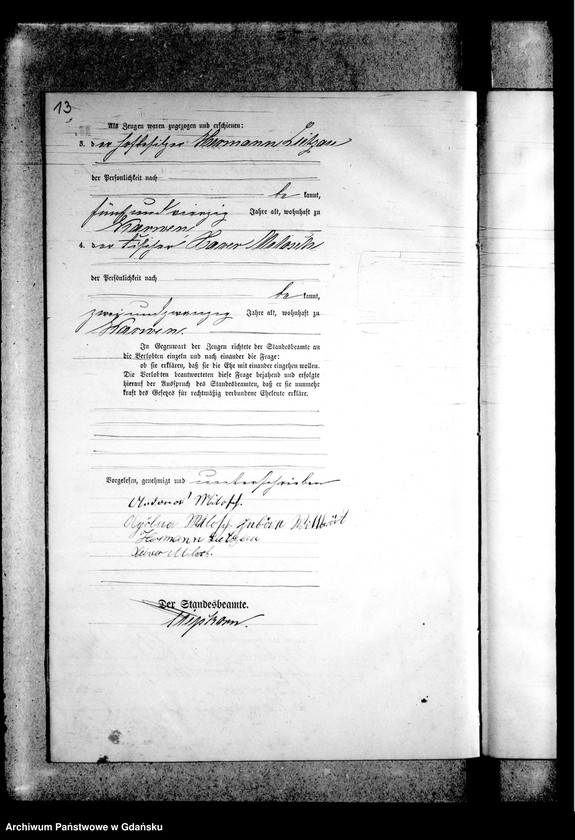 13
Als Zeugen waren zugezogen und erschienen:
3. der Hofbesitzer Hermann Lietzau
der Persönlichkeit nach
be kannt,
fünf und vierzig Jahre alt, wohnhaft zu
Karwen
4. der Tischler Xaver Milosch
der Persönlichkeit nach
be kannt,
zwei und zwanzig Jahre alt, wohnhaft zu
Karwen.
In Gegenwart der Zeugen richtete der Standesbeamte an
die Verlobten einzeln und nach einander die Frage:
ob sie erklären, daß sie die Ehe mit einander eingehen wollen.
Die Verlobten beantworteten diese Frage bejahend und erfolgte
hierauf der Ausspruch des Standesbeamten, daß er sie nunmehr
kraft des Gesetzes für rechtmäßig verbundene Eheleute erkläre.
Vorgelesen, genehmigt und unterschrieben
Milosch.
Milosch geboren
Hermann Lietzau
Xaver Milosch.
Der Standesbeamte.
Archiwum Państwowe w Gdańsku